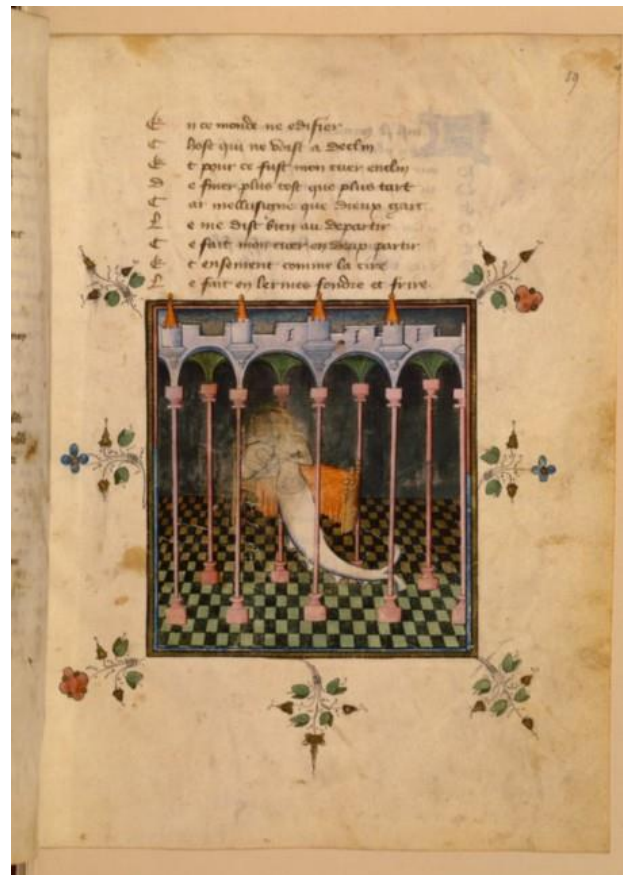 19
E n ce monde ne edifier
C hose qui ne voist a declin
E t pour ce fust mon cuer enclin
D e finer plus tost que plus tart
C ar mellusigne que dieux gart
L e me dist bien au departir
C e fait mon cuer en deux partir
E t ensement comme la cire
L e fait en lermes fondre et frire